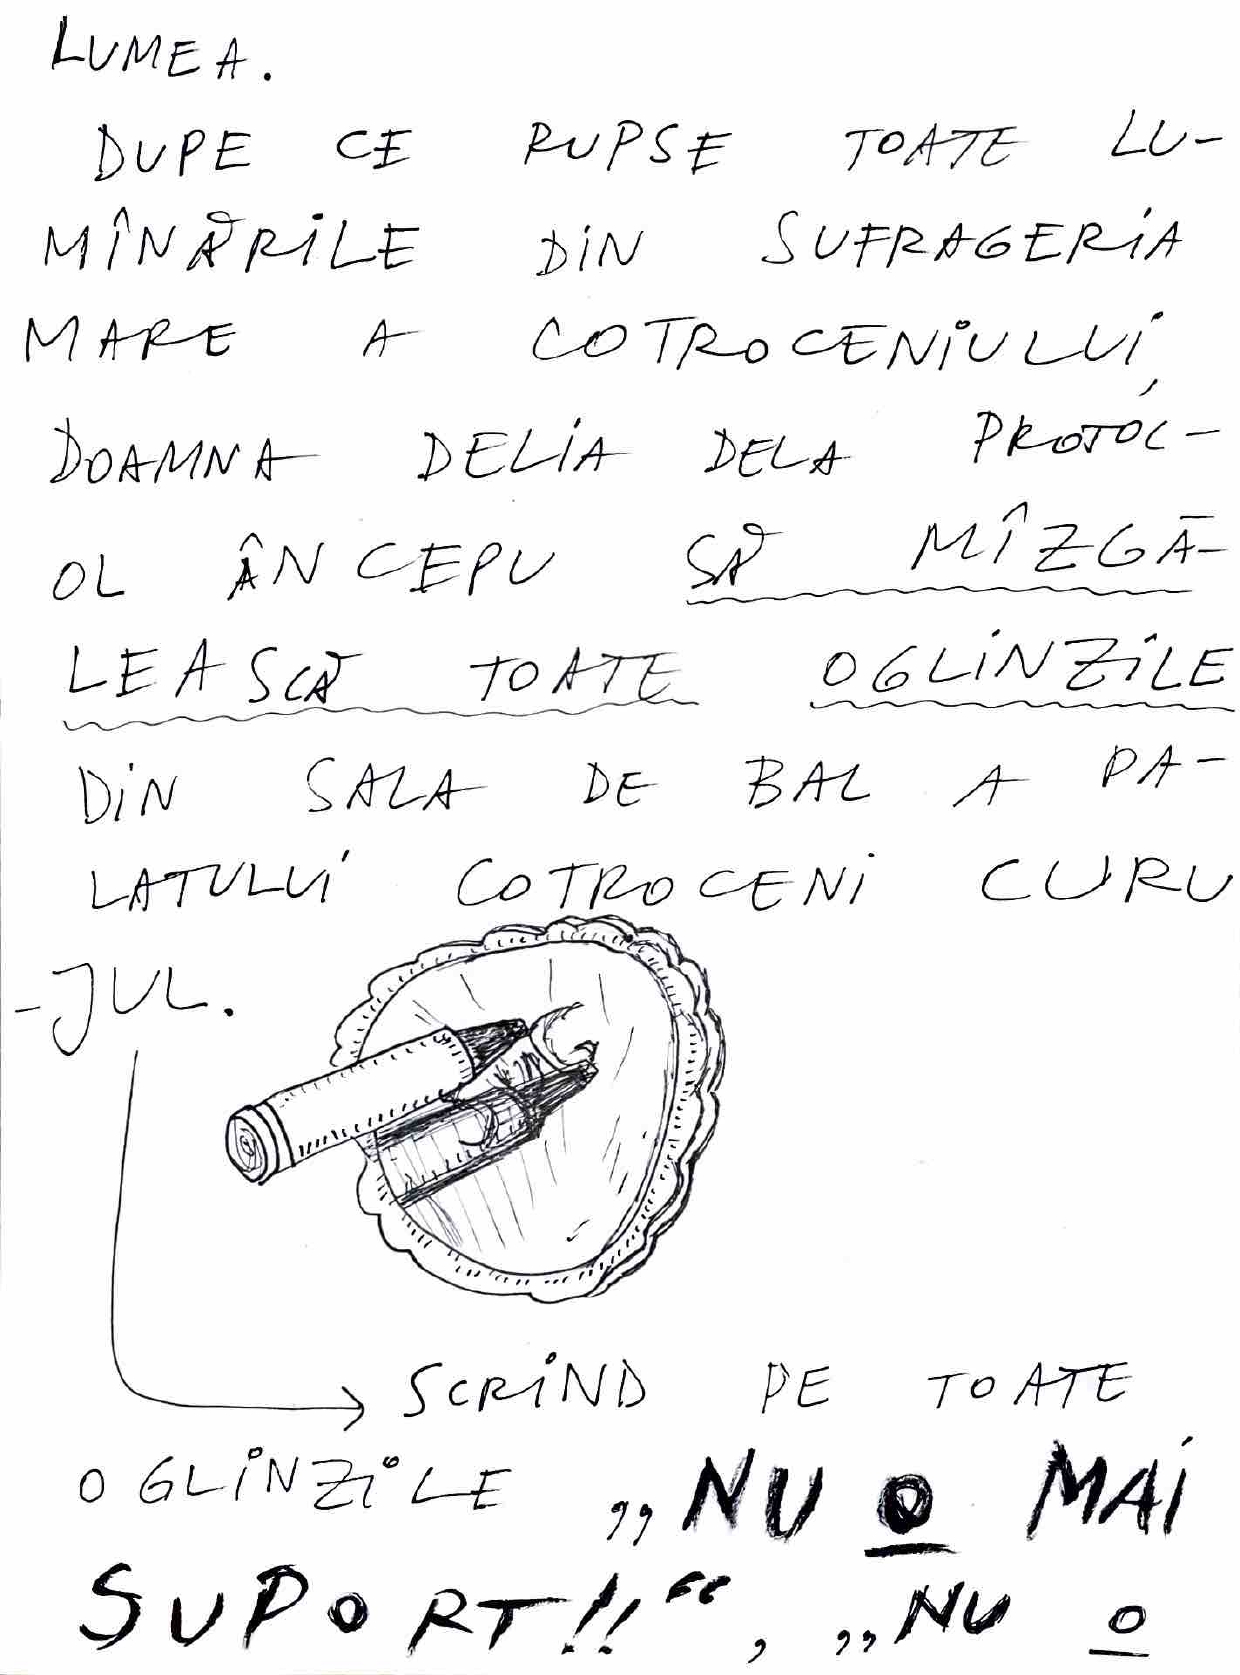 LUMEA.
DUPE CE RUPSE TOATE LU-
MÎNĂRILE DIN SUFRAGERIA
MARE A COTROCENIULUI,
DOAMNA DELIA DELA PROTOC-
OL ÂNCEPU SĂ MÎZGĂ-
LEASCĂ TOATE OGLINZILE
DIN SALA DE BAL A PA-
LATULUI COTROCENI CURU
-JUL.
SCRIIND PE TOATE
OGLINZILE „NU O MAI
SUPORT!!“, „NU O